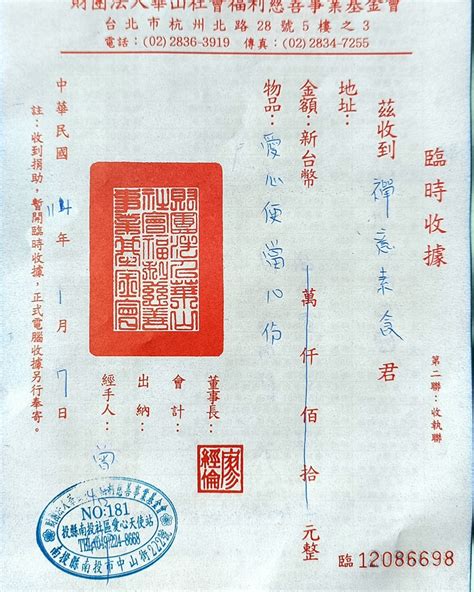 財團法人華山社會福利慈善事業基金會
台北市杭州北路28號5樓之3
電話：(02) 2836-3919 傳真：(02) 2834-7255
臨時收據
第二聯：收執聯
茲收到 禪意素食 君
地址：
金額：新台幣 萬 仟 佰 拾 元整
物品：愛心便當 份
董事長：
廖經倫
會計：
出納：
經手人：
財團法人華山社會福利慈善事業基金會
中華民國 114 年 1 月 7 日
註：收到捐助，暫開臨時收據，正式電腦收據另行奉寄。
NO:181
投縣南投社區愛心天使站
TEL:(049)224-8668
南投縣南投市中山街222號
臨 12086698